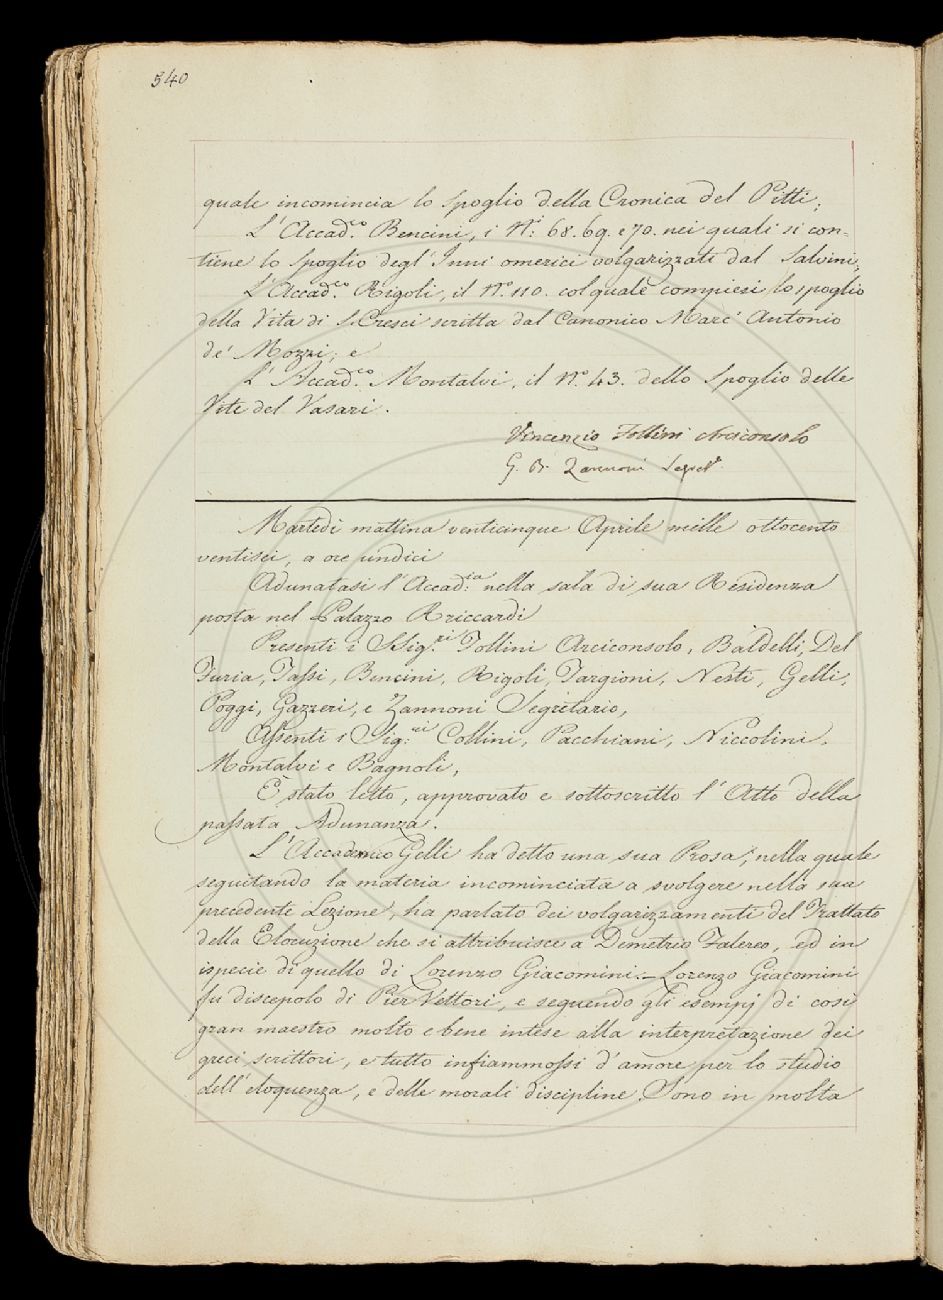 540
quale incomincia lo Spoglio della Cronica del Pitti;
L'Accad.co Bencini, i N.i 68. 69. e 70. nei quali si con-
tiene lo Spoglio degl'Inni omerici volgarizzati dal Salvini;
L'Accad.co Rigoli, il N.o 110. col quale compiesi lo spoglio
della Vita di S. Cresci scritta dal Canonico Marc'Antonio
de' Mozzi; e
L'Accad.co Montalvi, il N.o 43. dello Spoglio delle
Vite del Vasari.
Vincenzio Follini Arciconsolo
G. B. Zannoni Segret.o
Martedì mattina venticinque Aprile mille ottocento
ventisei, a ore undici
Adunatasi l'Accad.ia nella sala di sua Residenza
posta nel Palazzo Riccardi
Presenti i SSig.ri Follini Arciconsolo, Baldelli, Del
Furia, Tassi, Bencini, Rigoli, Targioni, Nesti, Gelli,
Poggi, Gazzeri, e Zannoni Segretario,
Assenti i Sig.ri Collini, Pacchiani, Niccolini,
Montalvi e Bagnoli,
È stato letto, approvato e sottoscritto l'Atto della
passata Adunanza.
L'Accademico Gelli ha detto una sua Prosa, nella quale
seguitando la materia incominciata a svolgere nella sua
precedente Lezione, ha parlato dei volgarizzamenti del Trattato
della Elocuzione che si attribuisce a Demetrio Falereo, ed in
ispecie di quello di Lorenzo Giacomini. - Lorenzo Giacomini
fu discepolo di Pier Vettori, e seguendo gli esempj di così
gran maestro molto e bene intese alla interpretazione dei
greci scrittori, e tutto infiammossi d'amore per lo studio
dell'eloquenza, e delle morali discipline. Sono in molta